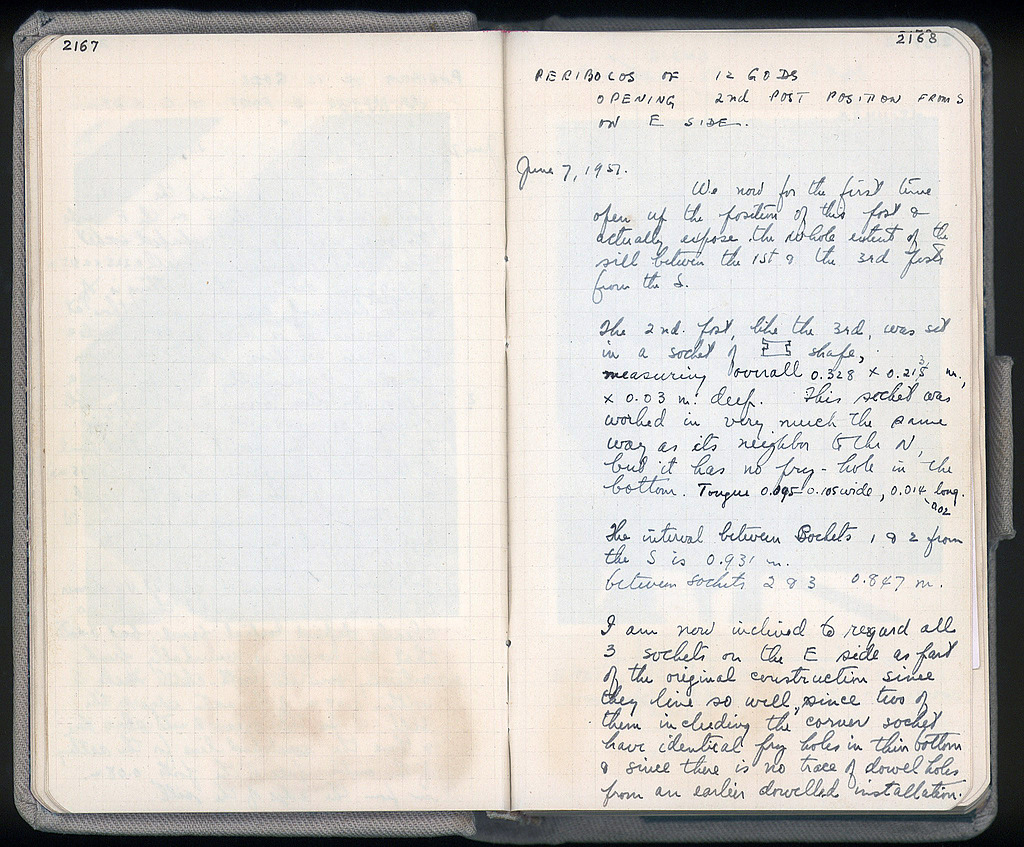 2167
2168
PERIBOLOS OF 12 GODS
OPENING 2nd POST POSITION FROM S
ON E SIDE.
June 7, 1951.
We now for the first time
open up the position of this post &
actually expose the whole extent of the
sill between the 1st & the 3rd posts
from the S.
The 2nd. post, like the 3rd, was set
in a socket of shape,
measuring overall 0.328 x 0.215 m.,
3
x 0.03 m. deep. This socket was
worked in very much the same
way as its neighbor to the N,
but it has no pry-hole in the
bottom. Tongue 0.095-0.105 wide, 0.014 long.
-.002
The interval between Sockets 1 & 2 from
the S is 0.931 m.
between sockets 2 & 3 0.847 m.
I am now inclined to regard all
3 sockets on the E side as part
of the original construction since
they line so well, since two of
them including the corner socket
have identical pry holes in their bottom
& since there is no trace of dowel holes
from an earlier dowelled installation.